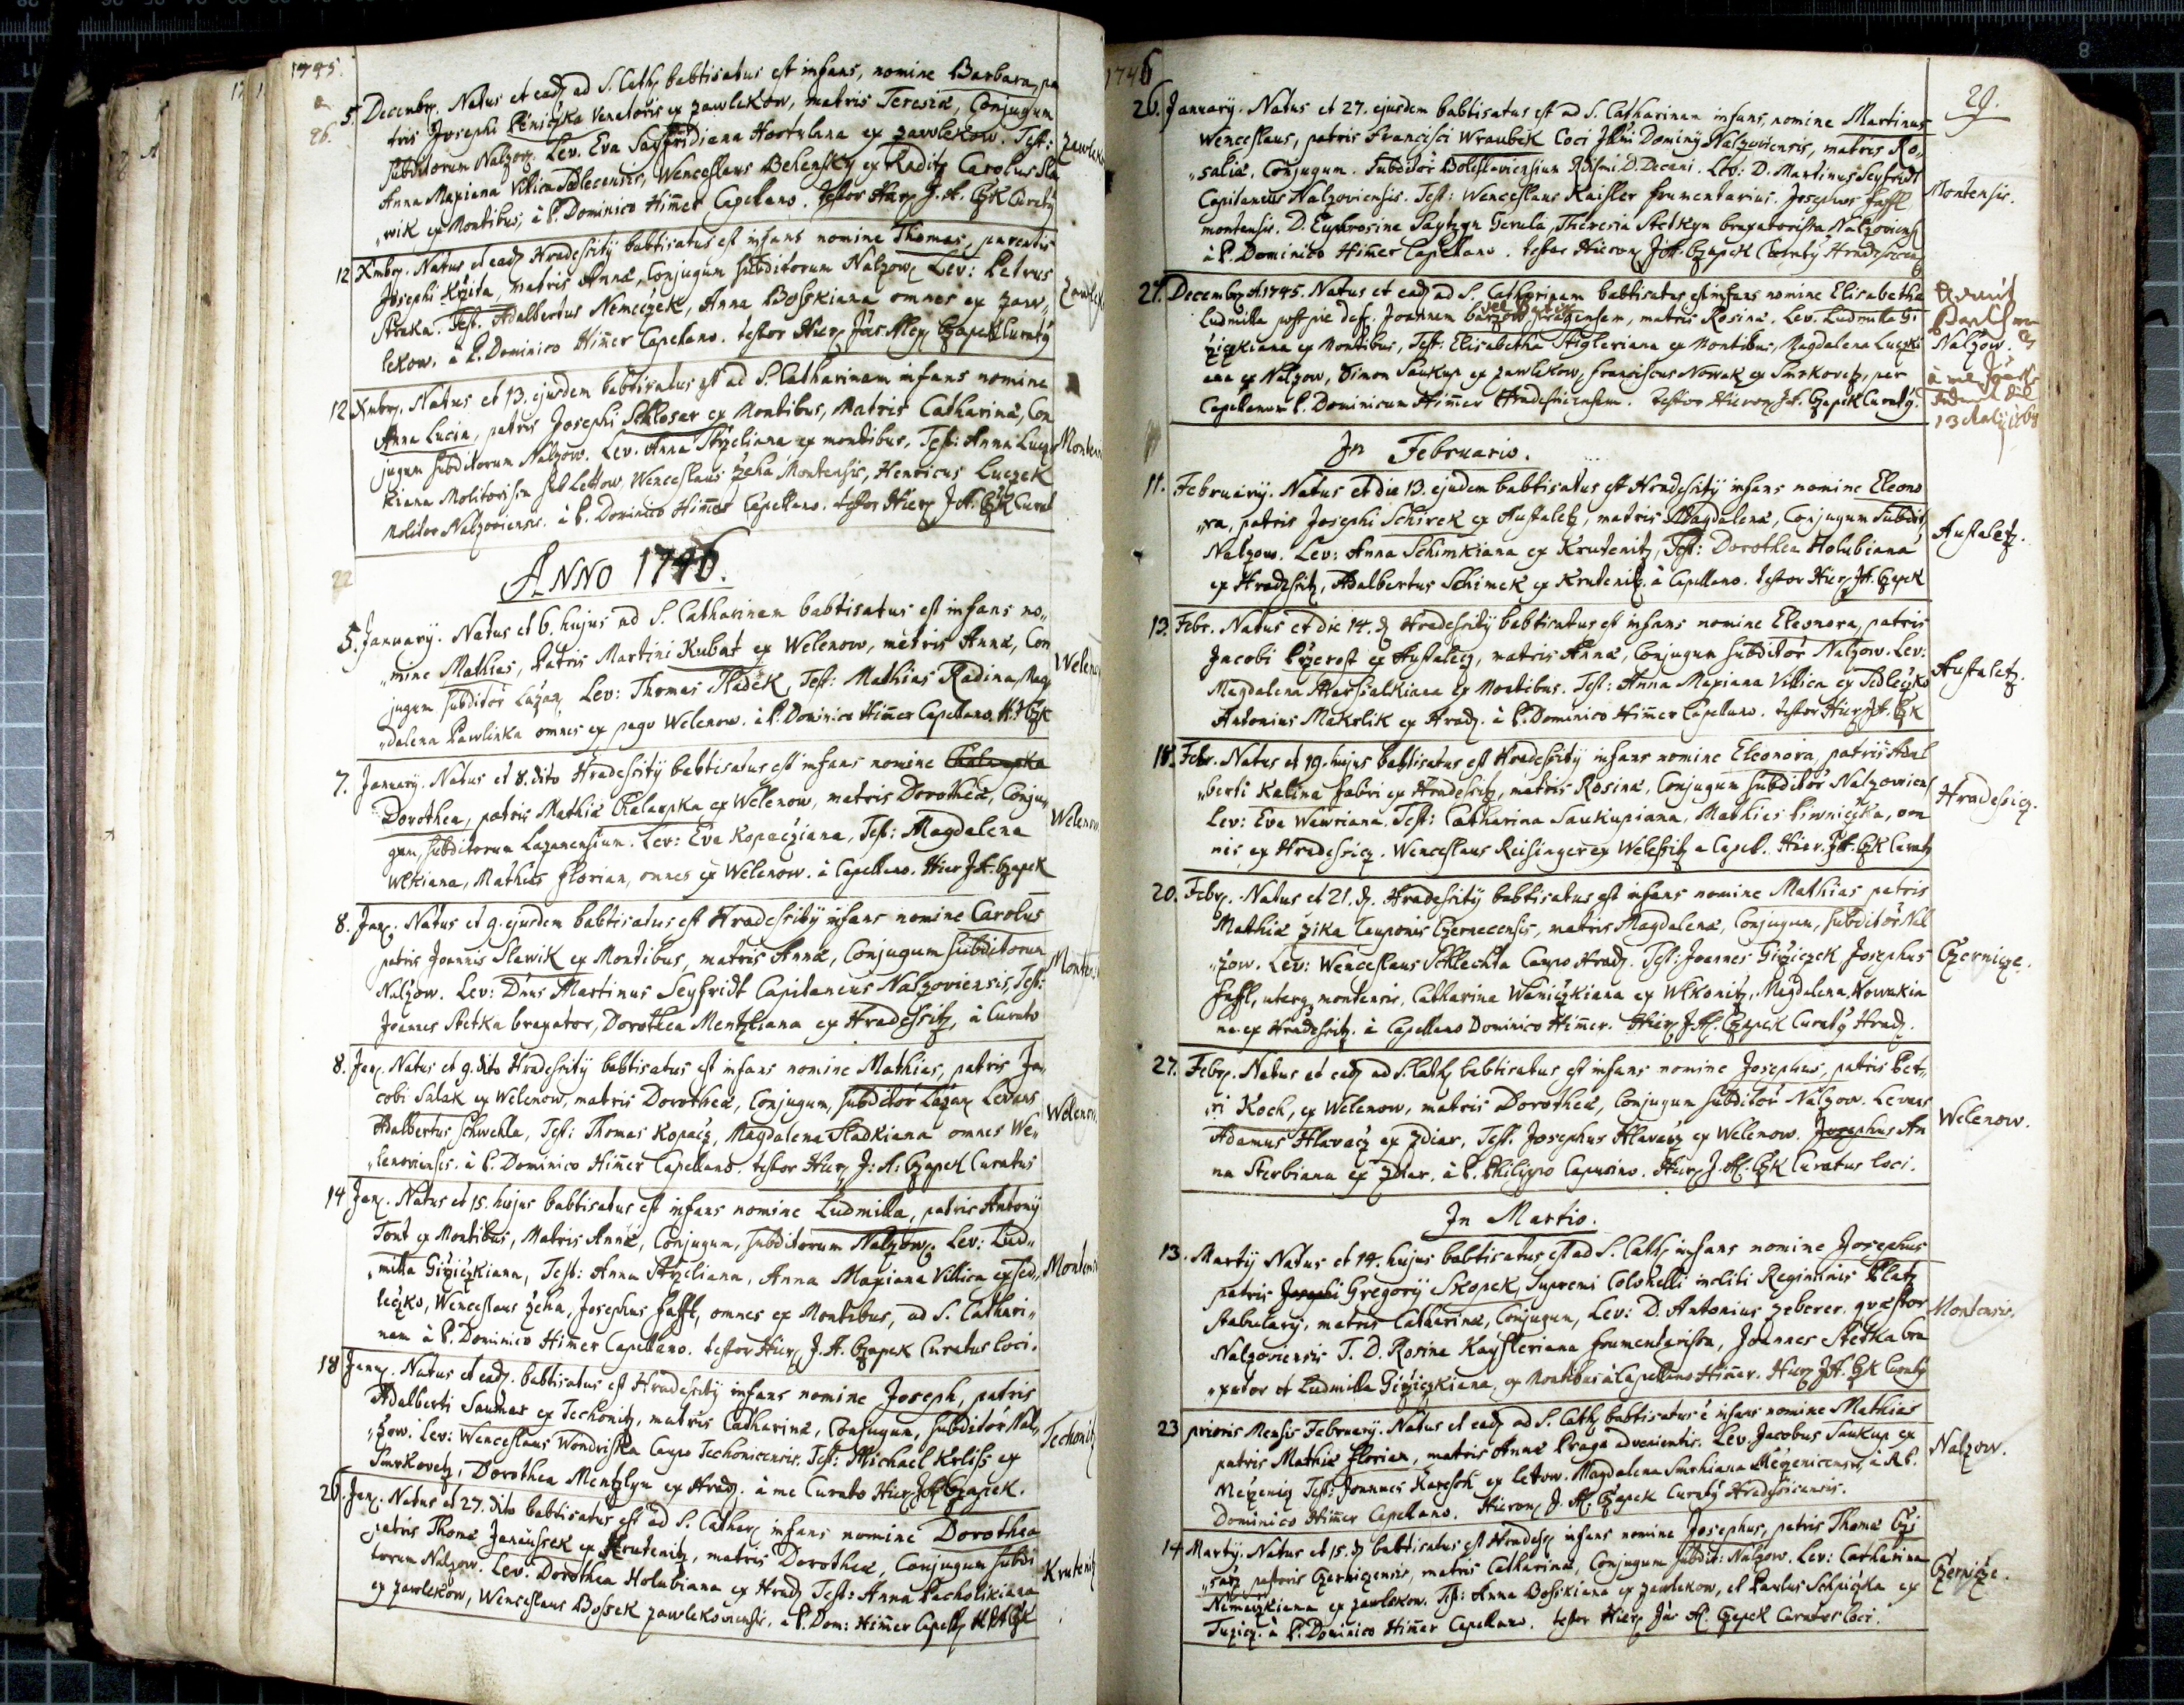 1745.
5. Decembr. Natus et eadem ad S. Cath. babtisatus est infans, nomine Barbara, pa
tris Josephi Peniczka Venatoris ex zawlekow, matris Teresiæ, Conjugum
subditorum Nalzow. Lev. Eva Seyfridiana Hortulana ex zawlekow. Test:
Anna Maxiana Villica Sedlecensis, Wenceslaus Behensky ex Raditz Carolus Sla
„wik ex Montibus, à P. Dominico Himer Capellano. testor Hier J. A. Czk Curaty
Zawlek
12 Xmbr. Natus et ead Hradessity babtisatus est infans nomine Thomas, parentis
Josephi Krzita, matris Annæ, Conjugum subditorum Nalzow Lev: Petrus
Straka. Test. Adalbertus Nemeczek, Anna Bosskiana omnes ex zaw„
lekow. à P. Dominico Himer Capellano. testor Hier Jas Alex Czapek Curaty
Zawlek
12 Xmbr. Natus et 13. ejusdem babtisatus est ad S. Catharinam infans nomine
Anna Lucia, patris Josephi Schloser ex Montibus, Matris Catharinæ, Con
jugum subditorum Nalzow. Lev. Anna Stryeliana ex montibus. Test: Anna Lucz
kiana Molitorissa sub Lettow, Wenceslaus zeha Montensis, Henricus Luczek
Molitor Nalzoviensis. à P. Dominico Himer Capellano. testor Hier J. A. Czk Curat
Montens
ANNO 1746.
5. January. Natus et 6. hujus ad S. Catharinam babtisatus est infans no„
„mine Mathias, Patris Martini Kubat ex Welenow, matris Annæ, Con
jugum subditor Lazan, Lev: Thomas Sladek, Test: Mathias Radina, Mag
„dalena Pawlinka omnes ex pago Welenow. à P. Dominico Himer Capellano. H. J. Czk
Welenow
7. January. Natus et 8. dito Hradessity babtisatus est infans nomine Chalaupka
Dorothea, patris Mathiæ Chalaupka ex Welenow, matris Dorotheæ, Conju„
gum, subditorum Lazanensium. Lev: Eva Kopacziana, Test: Magdalena
Wlkiana, Matheus Florian, omnes ex Welenow. à Capellano. Hier J. A. Czapek
Welenow
8. Jan. Natus et 9. ejusdem babtisatus est Hradessity infans nomine Carolus
patris Joannis Slawik ex Montibus, matris Annæ, Conjugum subditorum
Nalzow. Lev: Dnus Martinus Seyfridt Capitaneus Nalzoviensis, Test:
Joannes Stetka braxator, Dorothea Mentzliana ex Hradessitz, à Curato
Montens
8. Jan. Natus et 9. dito Hradessity babtisatus est infans nomine Mathias, patris Ja„
cobi Salak ex Welenow, matris Dorotheæ, Conjugum, subditor Lazan Levans
Adalbertus Schwehla, Test: Thomas Kopacz, Magdalena Sladkiana omnes We„
„lenoviensis. à P. Dominico Himer Capellano. testor Hier J: A: Czapek Curatus
Welenow
14 Jan. Natus et 15. hujus babtisatus est infans nomine Ludmilla, patris Antony
Font ex Montibus, Matris Annæ, Conjugum, subditorum Nalzow. Lev: Lud„
„milla Giziczkiana, Test: Anna Stryeliana, Anna Maxiana Villica ex Sed„
leczko, Wenceslaus zeha, Josephus Faffl, omnes ex Montibus, ad S. Cathari„
nam à P. Dominico Himer Capellano. testor Hier J. A. Czapek Curatus loci.
Montens
18 Janu. Natus et ead. babtisatus est Hradessity infans nomine Joseph, patris
Adalberti Saumar ex Techonitz, matris Catharinæ, Conjugum, subditor Nal„
„zow. Lev: Wenceslaus Wondriska Caupo Techonicensis. Test: Michael Krliss ex
Smrkovetz, Dorothea Mentzlyn ex Hrad. à me Curato Hier J. A. Czapek.
Techonitz
26. Jan. Natus et 27. dito babtisatus est ad S. Cathar infans nomine Dorothea
patris Thomæ Janaussek ex Krutenitz, matris Dorotheæ, Conjugum subdi
torum Nalzow. Lev. Dorothea Holubiana ex Hrad Test: Anna Pacholikiana
ex zawlekow, Wenceslaus Bossek zawlekoviensis. à P. Dom: Himer Capell H. A. Czk
Krutenitz
1746
29.
26. January. Natus et 27. ejusdem babtisatus est ad S. Catharinam infans, nomine Martinus
Wenceslaus, patris Francisci Wraubek Coci Illmi Dominy Nalzoviensis, matris Ro„
„saliæ, Conjugum. Subditor Boleslaviensium Rdsmi D. Decani. Lev: D. Martinus Seyfridt
Capitaneus Nalzoviensis. Test: Wenceslaus Kaisler frumentarius. Josephus Faffl
montensis. D. Euphrosine Saytzyn Gerula Theresia Stetkyn braxatorissa Nalzoviens
à P. Dominico Himer Capellano. testor Hieron J. A. Czapek Curaty Hradessicens
Montensis.
27. Decembr. A. 1745. Natus et ead ad S. Catharinam babtisatus est infans nomine Elisabetha
Ludmilla post pie def. Joannem pragensem, matris Rosinæ. Lev. Ludmilla Gi
ziczkiana ex Montibus, Test: Elisabetha Stigleriana ex Montibus, Magdalena Luczki
ana ex Nalzow, Simon Saukup ex zawlekow, Franciscus Nowak ex Smrkovetz, per
Capellanum P. Dominicum Himer Hradessicensem. Testor Hieron J. A. Czapek Curaty.
Nalzow.
In Februario.
11. February. Natus et die 13. ejusdem babtisatus est Hradessity infans nomine Eleono
„ra, patris Josephi Schirek ex Austaletz, matris Magdalenæ, Conjugum subdit
Nalzow. Lev: Anna Schimkiana ex Krutenitz, Test: Dorothea Holubiana
ex Hradessitz, Adalbertus Schimek ex Krutenitz. à Capellano. testor Hier J. A. Czapek
Austaletz.
13. Febr. Natus et die 14. d Hradessity babtisatus est infans nomine Eleonora, patris
Jacobi Przerost ex Austalecz, matris Annæ, Conjugum subditor Nalzow. Lev:
Magdalena Marssalkiana ex Montibus. Test: Anna Maxiana Villica ex Sedleczko
Antonius Makrlik ex Hrad. à P. Dominico Himer Capellano. testor Hier J. A. Czk
Austaletz.
18. Febr. Natus et 19. hujus babtisatus est Hradessity infans nomine Eleonora, patris Adal
„berti Kalina Fabri ex Hradessitz, matris Rosinæ, Conjugum subditor Nalzoviens
Lev: Eva Wawriana. Test: Catharina Saukupiana, Mathies Piwniczka, om
nes ex Hradessicz. Wenceslaus Reisinger ex Welessitz a Capel. Hier. J. A. Czk Curaty
Hradessicz.
20. Febr. Natus et 21. d. Hradessity babtisatus est infans nomine Mathias patris
Mathiæ zika Cauponis Czernecensis, matris Magdalenæ, Conjugum, subditor Nal
„zow. Lev: Wenceslaus Schlechta Caupo Hrad. Test: Joannes Giziczek Josephus
Faffl, uterq montensis, Catharina Waniczkiana ex Wlkonitz, Magdalena Nowakia
na ex Hradessitz. à Capellano Dominico Himer. Hier J. A. Czapek Curaty Hrad.
Czernicze.
27. Febr. Natus et ead ad S. Cath babtisatus est infans nomine Josephus, patris Pet„
„ri Koch, ex Welenow, matris Dorotheæ, Conjugum subditor Nalzow. Levans
Adamus Hlavacz ex zdiar, Test. Josephus Hlavacz ex Welenow. Josephus An
na Sterbiana ex zdiar, à P. Philippo Capucino. Hier J. A. Czk Curatus loci.
Welenow.
In Martio.
13. Marty Natus et 14. hujus babtisatus est ad S. Cath infans nomine Josephus
patris Josephi Gregory Skopek, Supremi Colonelli incliti Regiminis Platz
Stabulary, matris Catharinæ, Conjugum, Lev: D. Antonius zeberer. quæstor
Nalzoviensis T. D. Rosina Kaysleriana frumentarissa, Joannes Stetka bra
„xator et Ludmilla Giziczkiana, ex Montibus à Capellano Himer. Hier J. A. Czk Curaty
Montensis.
23 prioris Mensis February. Natus et ead ad S. Cath babtisatus è infans nomine Mathias
patris Mathiæ Florian, matris Annæ Praga advenientis. Lev. Jacobus Saukup ex
Mezeniz Test: Joannes Karessch ex Letow. Magdalena Smrhiana Mezenicensis, à R. P.
Dominico Himer Capellano. Hieron J. A. Czapek Curaty Hradessicensis.
Nalzow.
14 Marty. Natus et 15. d babtisatus est Hradess infans nomine Josephus, patris Thomæ Czi
„sarz pastoris Czerniczensis, matris Catharinæ, Conjugum subdit: Nalzow. Lev: Catharina
Nemeczkiana ex zawlekow. Test: Anna Bosskiana ex zawlekow, et Paulus Schpiczka ex
Tuzicz. à P. Dominico Himer Capellano. testor Hier Jas A. Czapek Curatus loci.
Czernicze.